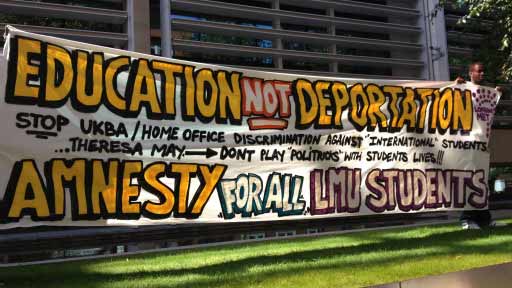 EDUCATION NOT DEPORTATION
STOP UKBA/HOME OFFICE DISCRIMINATION AGAINST "INTERNATIONAL" STUDENTS
...THERESA MAY → DONT PLAY "POLITRICKS" WITH STUDENTS LIVES!!!
AMNESTY FOR ALL LMU STUDENTS
LONDON MET